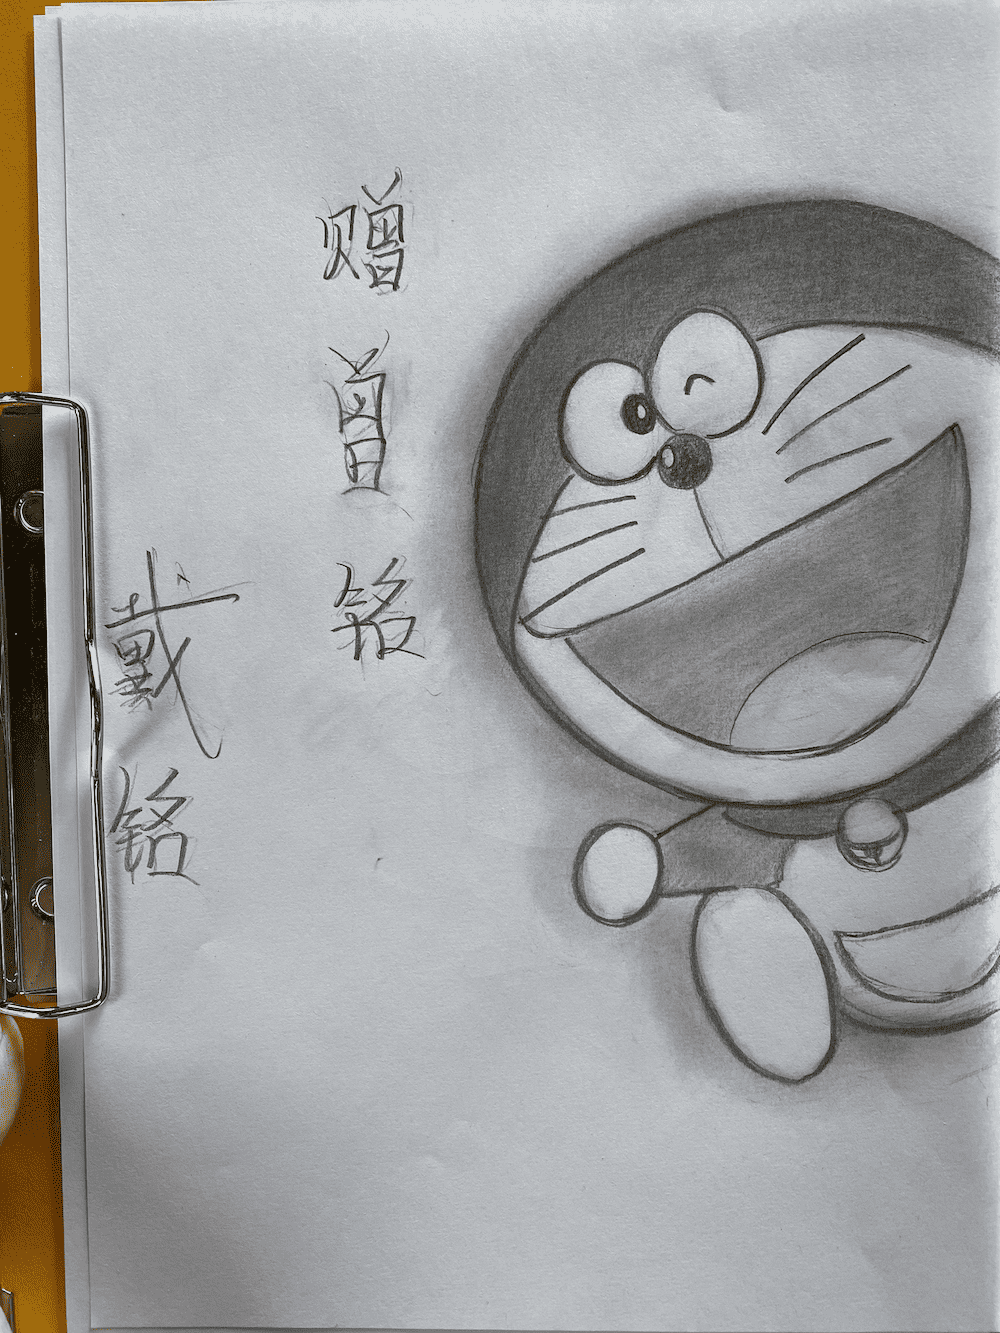 赠曾铭
戴铭